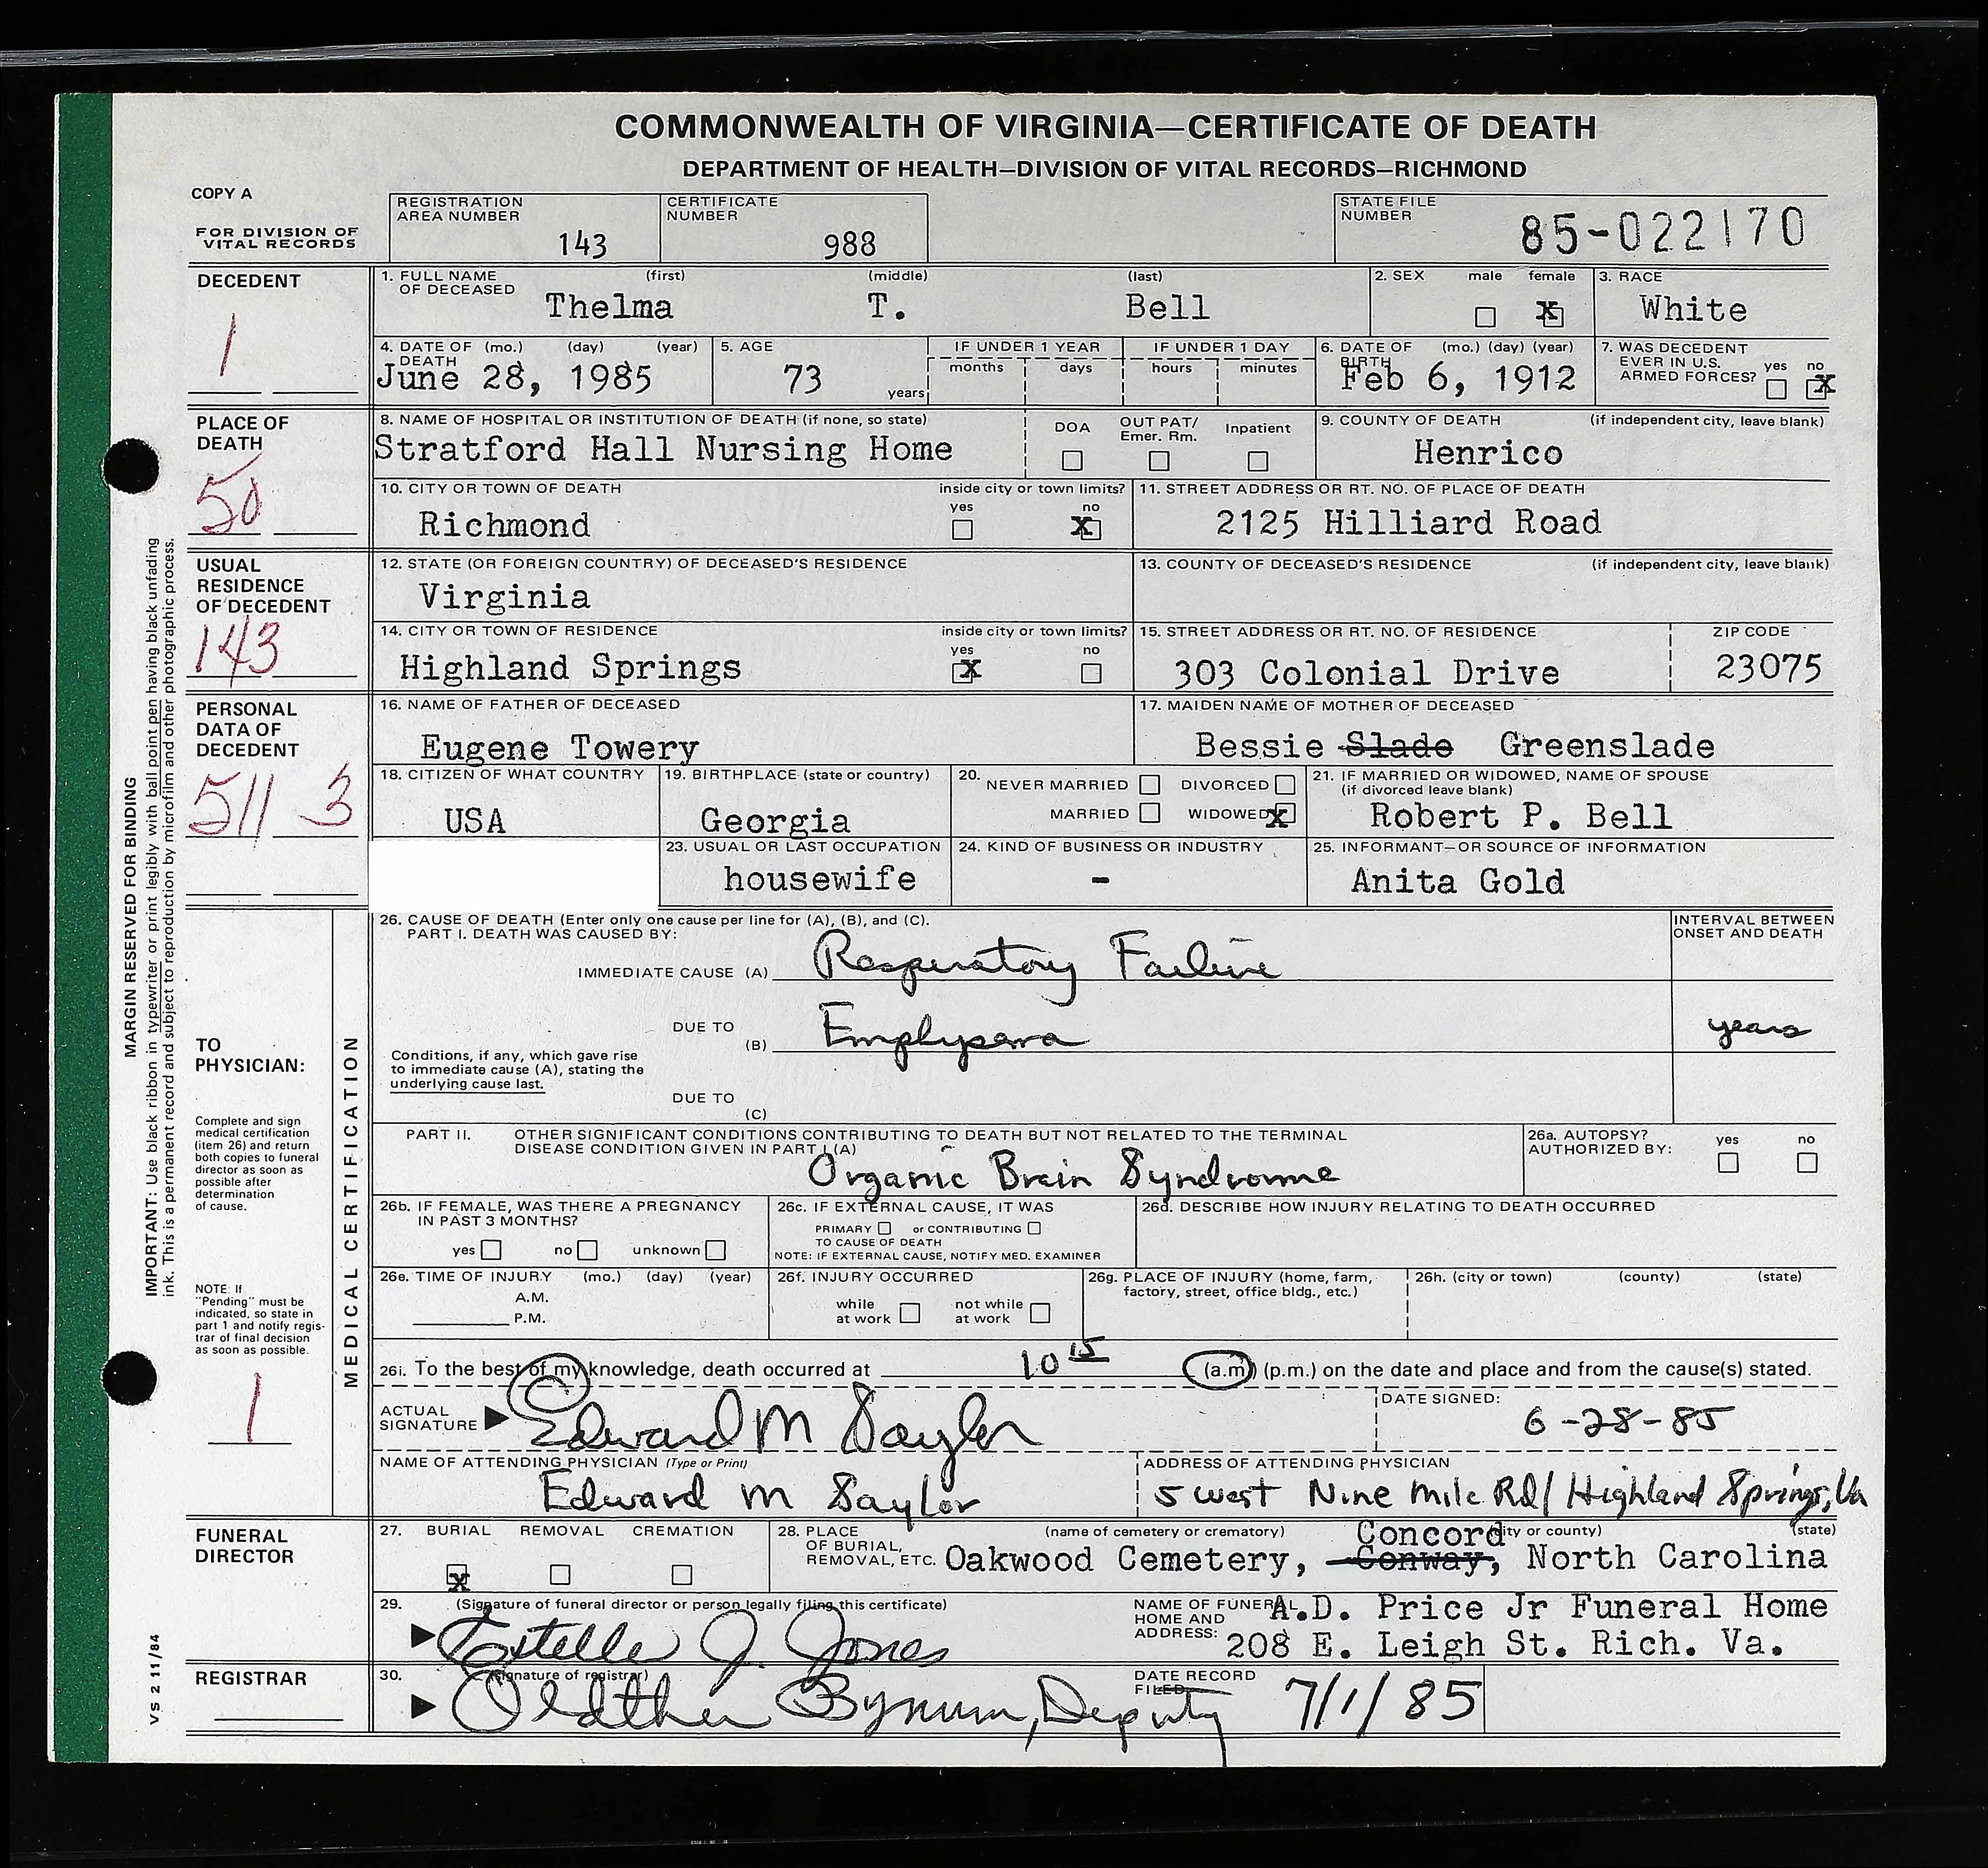 COMMONWEALTH OF VIRGINIA—CERTIFICATE OF DEATH
DEPARTMENT OF HEALTH—DIVISION OF VITAL RECORDS—RICHMOND
COPY A
FOR DIVISION OF VITAL RECORDS
REGISTRATION AREA NUMBER 143
CERTIFICATE NUMBER 988
STATE FILE NUMBER 85-022170
DECEDENT
1
1. FULL NAME OF DECEASED (first) (middle) (last)
Thelma T. Bell
2. SEX male female X
3. RACE White
4. DATE OF DEATH (mo.) (day) (year)
June 28, 1985
5. AGE 73 years
IF UNDER 1 YEAR months days
IF UNDER 1 DAY hours minutes
6. DATE OF BIRTH (mo.) (day) (year)
Feb 6, 1912
7. WAS DECEDENT EVER IN U.S. ARMED FORCES? yes no X
PLACE OF DEATH
50
8. NAME OF HOSPITAL OR INSTITUTION OF DEATH (if none, so state)
Stratford Hall Nursing Home
DOA OUT PAT/ Emer. Rm. Inpatient
9. COUNTY OF DEATH (if independent city, leave blank)
Henrico
10. CITY OR TOWN OF DEATH inside city or town limits? yes no
Richmond X
11. STREET ADDRESS OR RT. NO. OF PLACE OF DEATH
2125 Hilliard Road
USUAL RESIDENCE OF DECEDENT
143
12. STATE (OR FOREIGN COUNTRY) OF DECEASED'S RESIDENCE
Virginia
13. COUNTY OF DECEASED'S RESIDENCE (if independent city, leave blank)
14. CITY OR TOWN OF RESIDENCE inside city or town limits? yes no
Highland Springs X
15. STREET ADDRESS OR RT. NO. OF RESIDENCE ZIP CODE
303 Colonial Drive 23075
PERSONAL DATA OF DECEDENT
511 3
16. NAME OF FATHER OF DECEASED
Eugene Towery
17. MAIDEN NAME OF MOTHER OF DECEASED
Bessie Slade Greenslade
18. CITIZEN OF WHAT COUNTRY
USA
19. BIRTHPLACE (state or country)
Georgia
20. NEVER MARRIED DIVORCED
MARRIED WIDOWED X
21. IF MARRIED OR WIDOWED, NAME OF SPOUSE
(if divorced leave blank)
Robert P. Bell
23. USUAL OR LAST OCCUPATION
housewife
24. KIND OF BUSINESS OR INDUSTRY
-
25. INFORMANT—OR SOURCE OF INFORMATION
Anita Gold
MARGIN RESERVED FOR BINDING
IMPORTANT: Use black ribbon in typewriter or print legibly with ball point pen having black unfading
ink. This is a permanent record and subject to reproduction by microfilm and other photographic process.
VS 2 11/84
TO PHYSICIAN:
Complete and sign
medical certification
(item 26) and return
both copies to funeral
director as soon as
possible after
determination
of cause.
NOTE: If
"Pending" must be
indicated, so state in
part 1 and notify regis-
trar of final decision
as soon as possible.
1
MEDICAL CERTIFICATION
26. CAUSE OF DEATH (Enter only one cause per line for (A), (B), and (C).
PART I. DEATH WAS CAUSED BY:
INTERVAL BETWEEN ONSET AND DEATH
IMMEDIATE CAUSE (A) Respiratory Failure
DUE TO (B) Emphysema years
Conditions, if any, which gave rise
to immediate cause (A), stating the
underlying cause last.
DUE TO (C)
PART II. OTHER SIGNIFICANT CONDITIONS CONTRIBUTING TO DEATH BUT NOT RELATED TO THE TERMINAL
DISEASE CONDITION GIVEN IN PART I (A)
Organic Brain Syndrome
26a. AUTOPSY? AUTHORIZED BY: yes no
26b. IF FEMALE, WAS THERE A PREGNANCY
IN PAST 3 MONTHS?
yes no unknown
26c. IF EXTERNAL CAUSE, IT WAS
PRIMARY or CONTRIBUTING
TO CAUSE OF DEATH
NOTE: IF EXTERNAL CAUSE, NOTIFY MED. EXAMINER
26d. DESCRIBE HOW INJURY RELATING TO DEATH OCCURRED
26e. TIME OF INJURY (mo.) (day) (year)
A.M.
P.M.
26f. INJURY OCCURRED
while at work not while at work
26g. PLACE OF INJURY (home, farm,
factory, street, office bldg., etc.)
26h. (city or town) (county) (state)
26i. To the best of my knowledge, death occurred at 10 15 (a.m) (p.m.) on the date and place and from the cause(s) stated.
ACTUAL SIGNATURE Edward M Saylor
DATE SIGNED: 6-28-85
NAME OF ATTENDING PHYSICIAN (Type or Print)
Edward M Saylor
ADDRESS OF ATTENDING PHYSICIAN
5 West Nine Mile Rd/ Highland Springs, Va
FUNERAL DIRECTOR
27. BURIAL REMOVAL CREMATION
X
28. PLACE OF BURIAL, REMOVAL, ETC. (name of cemetery or crematory) (city or county) (state)
Concord
Oakwood Cemetery, Conway, North Carolina
29. (Signature of funeral director or person legally filing this certificate)
Estelle J. Jones
NAME OF FUNERAL HOME AND ADDRESS:
A.D. Price Jr Funeral Home
208 E. Leigh St. Rich. Va.
REGISTRAR
30. (signature of registrar)
Bynum, Deputy
DATE RECORD FILED 7/1/85